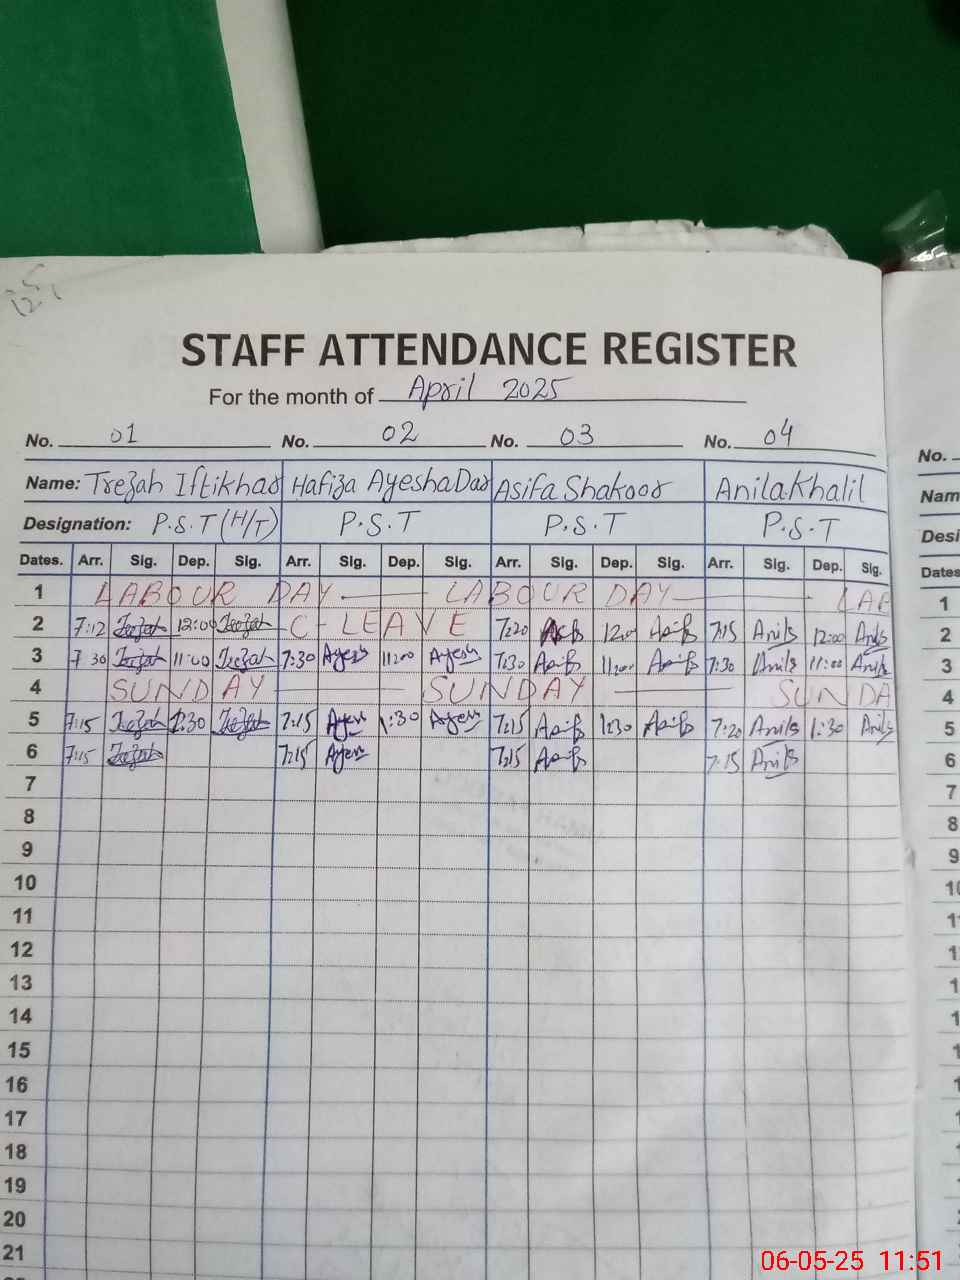 STAFF ATTENDANCE REGISTER
For the month of April 2025
No. 01 No. 02 No. 03 No. 04
Name: Trezah Iftikhar Hafiza Ayesha Dar Asifa Shakoor Anila Khalil
Designation: P.S.T (H/T) P.S.T P.S.T P.S.T
Dates. Arr. Sig. Dep. Sig. Arr. Sig. Dep. Sig. Arr. Sig. Dep. Sig. Arr. Sig. Dep. Sig.
1 LABOUR DAY LABOUR DAY LAB
2 7:12 Trezah 12:00 Trezah C-LEAVE 7:20 Asifa 12:00 Asifa 7:15 Anila 12:00 Anila
3 7:30 Trezah 11:00 Trezah 7:30 Ayesha 11:00 Ayesha 7:30 Asifa 11:00 Asifa 7:30 Anila 11:00 Anila
4 SUNDAY SUNDAY SUNDA
5 7:15 Trezah 1:30 Trezah 7:15 Ayesha 1:30 Ayesha 7:15 Asifa 1:30 Asifa 7:20 Anila 1:30 Anila
6 7:15 Trezah 7:15 Ayesha 7:15 Asifa 7:15 Anila
7
8
9
10
11
12
13
14
15
16
17
18
19
20
21
No.
Nam
Desi
Dates
1
2
3
4
5
6
7
8
9
06-05-25 11:51